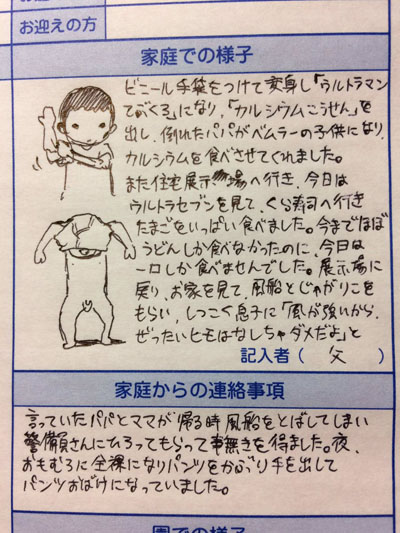 お迎えの方
家庭での様子
ビニール手袋をつけて変身し「ウルトラマン
てぶくろ」になり、「カルシウムこうせん」を
出し、倒れたパパがベムラーの子供になり、
カルシウムを食べさせてくれました。
また住宅展示場へ行き、今日は
ウルトラセブンを見て、くら寿司へ行き
たまごをいっぱい食べました。今までほぼ
うどんしか食べなかったのに、今日は
一口しか食べませんでした。展示場に
戻り、お家を見て、風船とじゃがりこを
もらい、しつこく息子に「風が強いから、
ぜったいヒモはなしちゃダメだよ」と
記入者(父)
家庭からの連絡事項
言っていたパパとママが帰る時風船をとばしてしまい
警備員さんにひろってもらって事無きを得ました。夜、
おもむろに全裸になりパンツをかぶり手を出して
パンツおばけになっていました。
園での様子